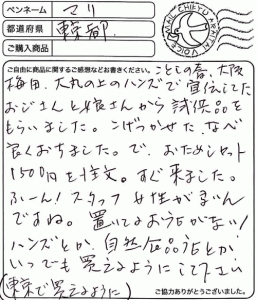 ペンネーム マリ
都道府県 東京都.
ご購入商品
MAHO CHIEYU ARIGATAI VOICE
ご自由に商品に関するご感想などお書きください。ことしの春、大阪
梅田、大丸の上のハンズで宣伝してた
おじさんと娘さんから試供品を
もらいました。こげつかせた、なべ
良くおちました。で、おためしセット
1500円を注文。すぐ来ました。
ふーん!スタッフ女性が多いん
ですね。置いてるお店がない!
ハンズとか、自然食品店とか
いつでも買えるようにして下さい
(東京で買えるように)
ご協力ありがとうございました。